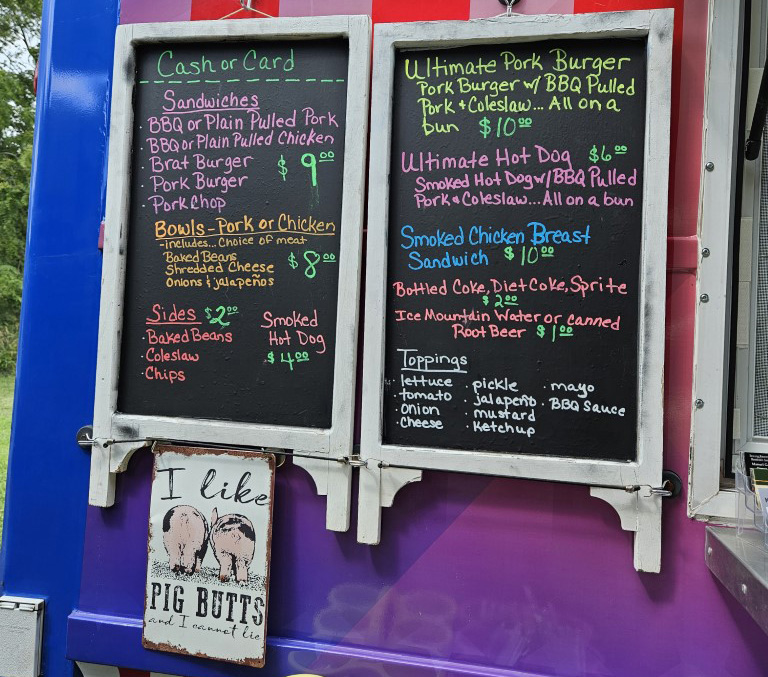 Cash or Card
Sandwiches
· BBQ or Plain Pulled Pork
· BBQ or Plain Pulled Chicken
· Brat Burger
· Pork Burger
· Pork Chop
$9.00
Bowls - Pork or Chicken
-includes... choice of meat
Baked Beans
Shredded Cheese
Onions & jalapeños
$8.00
Sides $2.00
· Baked Beans
· Coleslaw
· Chips
Smoked
Hot Dog
$4.00
Ultimate Pork Burger
Pork Burger w/ BBQ Pulled
Pork & Coleslaw... All on a
bun $10.00
Ultimate Hot Dog $6.00
Smoked Hot Dog w/ BBQ Pulled
Pork & Coleslaw... All on a bun
Smoked Chicken Breast
Sandwich $10.00
Bottled Coke, Diet Coke, Sprite
$2.00
Ice Mountain Water or canned
Root Beer $1.00
Toppings
· lettuce
· tomato
· onion
· cheese
· pickle
· jalapeño
· mustard
· Ketchup
· mayo
· BBQ Sauce
I like
PIG BUTTS
and I cannot lie